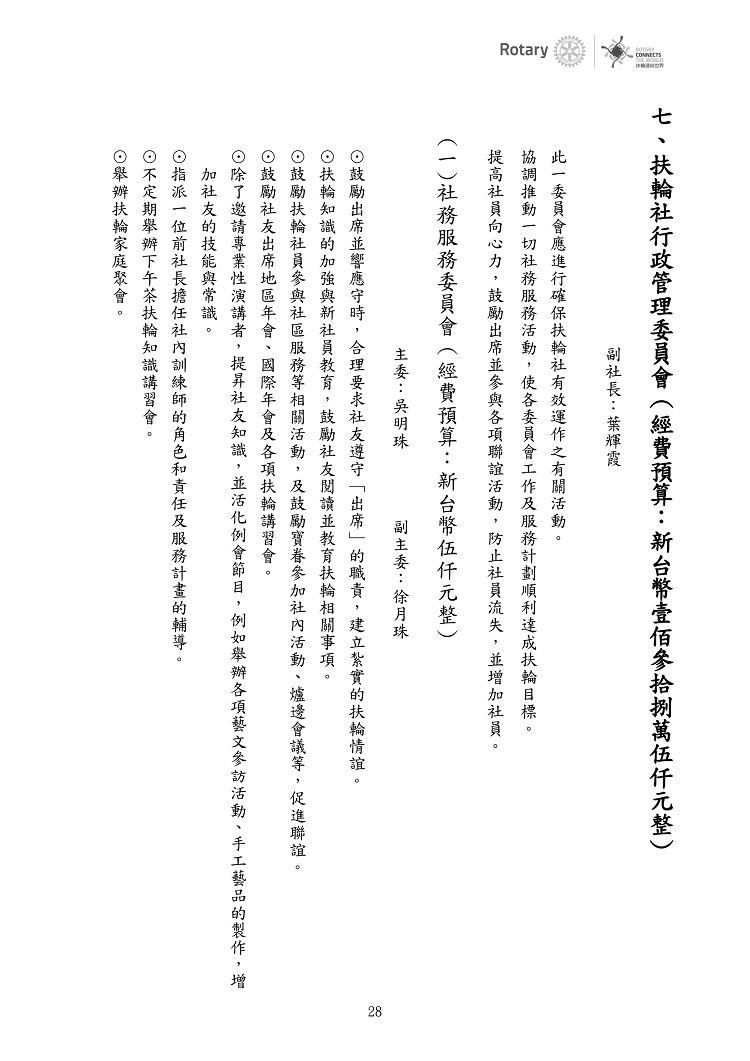 Rotary
ROTARY
CONNECTS
THE WORLD
扶輪連結世界
七、扶輪社行政管理委員會（經費預算：新台幣壹佰參拾捌萬伍仟元整）
副社長：葉輝霞
此一委員會應進行確保扶輪社有效運作之有關活動。
協調推動一切社務服務活動，使各委員會工作及服務計劃順利達成扶輪目標。
提高社員向心力，鼓勵出席並參與各項聯誼活動，防止社員流失，並增加社員。
（一）社務服務委員會（經費預算：新台幣伍仟元整）
主委：吳明珠　副主委：徐月珠
⊙鼓勵出席並響應守時，合理要求社友遵守「出席」的職責，建立紮實的扶輪情誼。
⊙扶輪知識的加強與新社員教育，鼓勵社友閱讀並教育扶輪相關事項。
⊙鼓勵扶輪社員參與社區服務等相關活動，及鼓勵寶眷參加社內活動、爐邊會議等，促進聯誼。
⊙鼓勵社友出席地區年會、國際年會及各項扶輪講習會。
⊙除了邀請專業性演講者，提昇社友知識，並活化例會節目，例如舉辦各項藝文參訪活動、手工藝品的製作，增
加社友的技能與常識。
⊙指派一位前社長擔任社內訓練師的角色和責任及服務計畫的輔導。
⊙不定期舉辦下午茶扶輪知識講習會。
⊙舉辦扶輪家庭聚會。
28